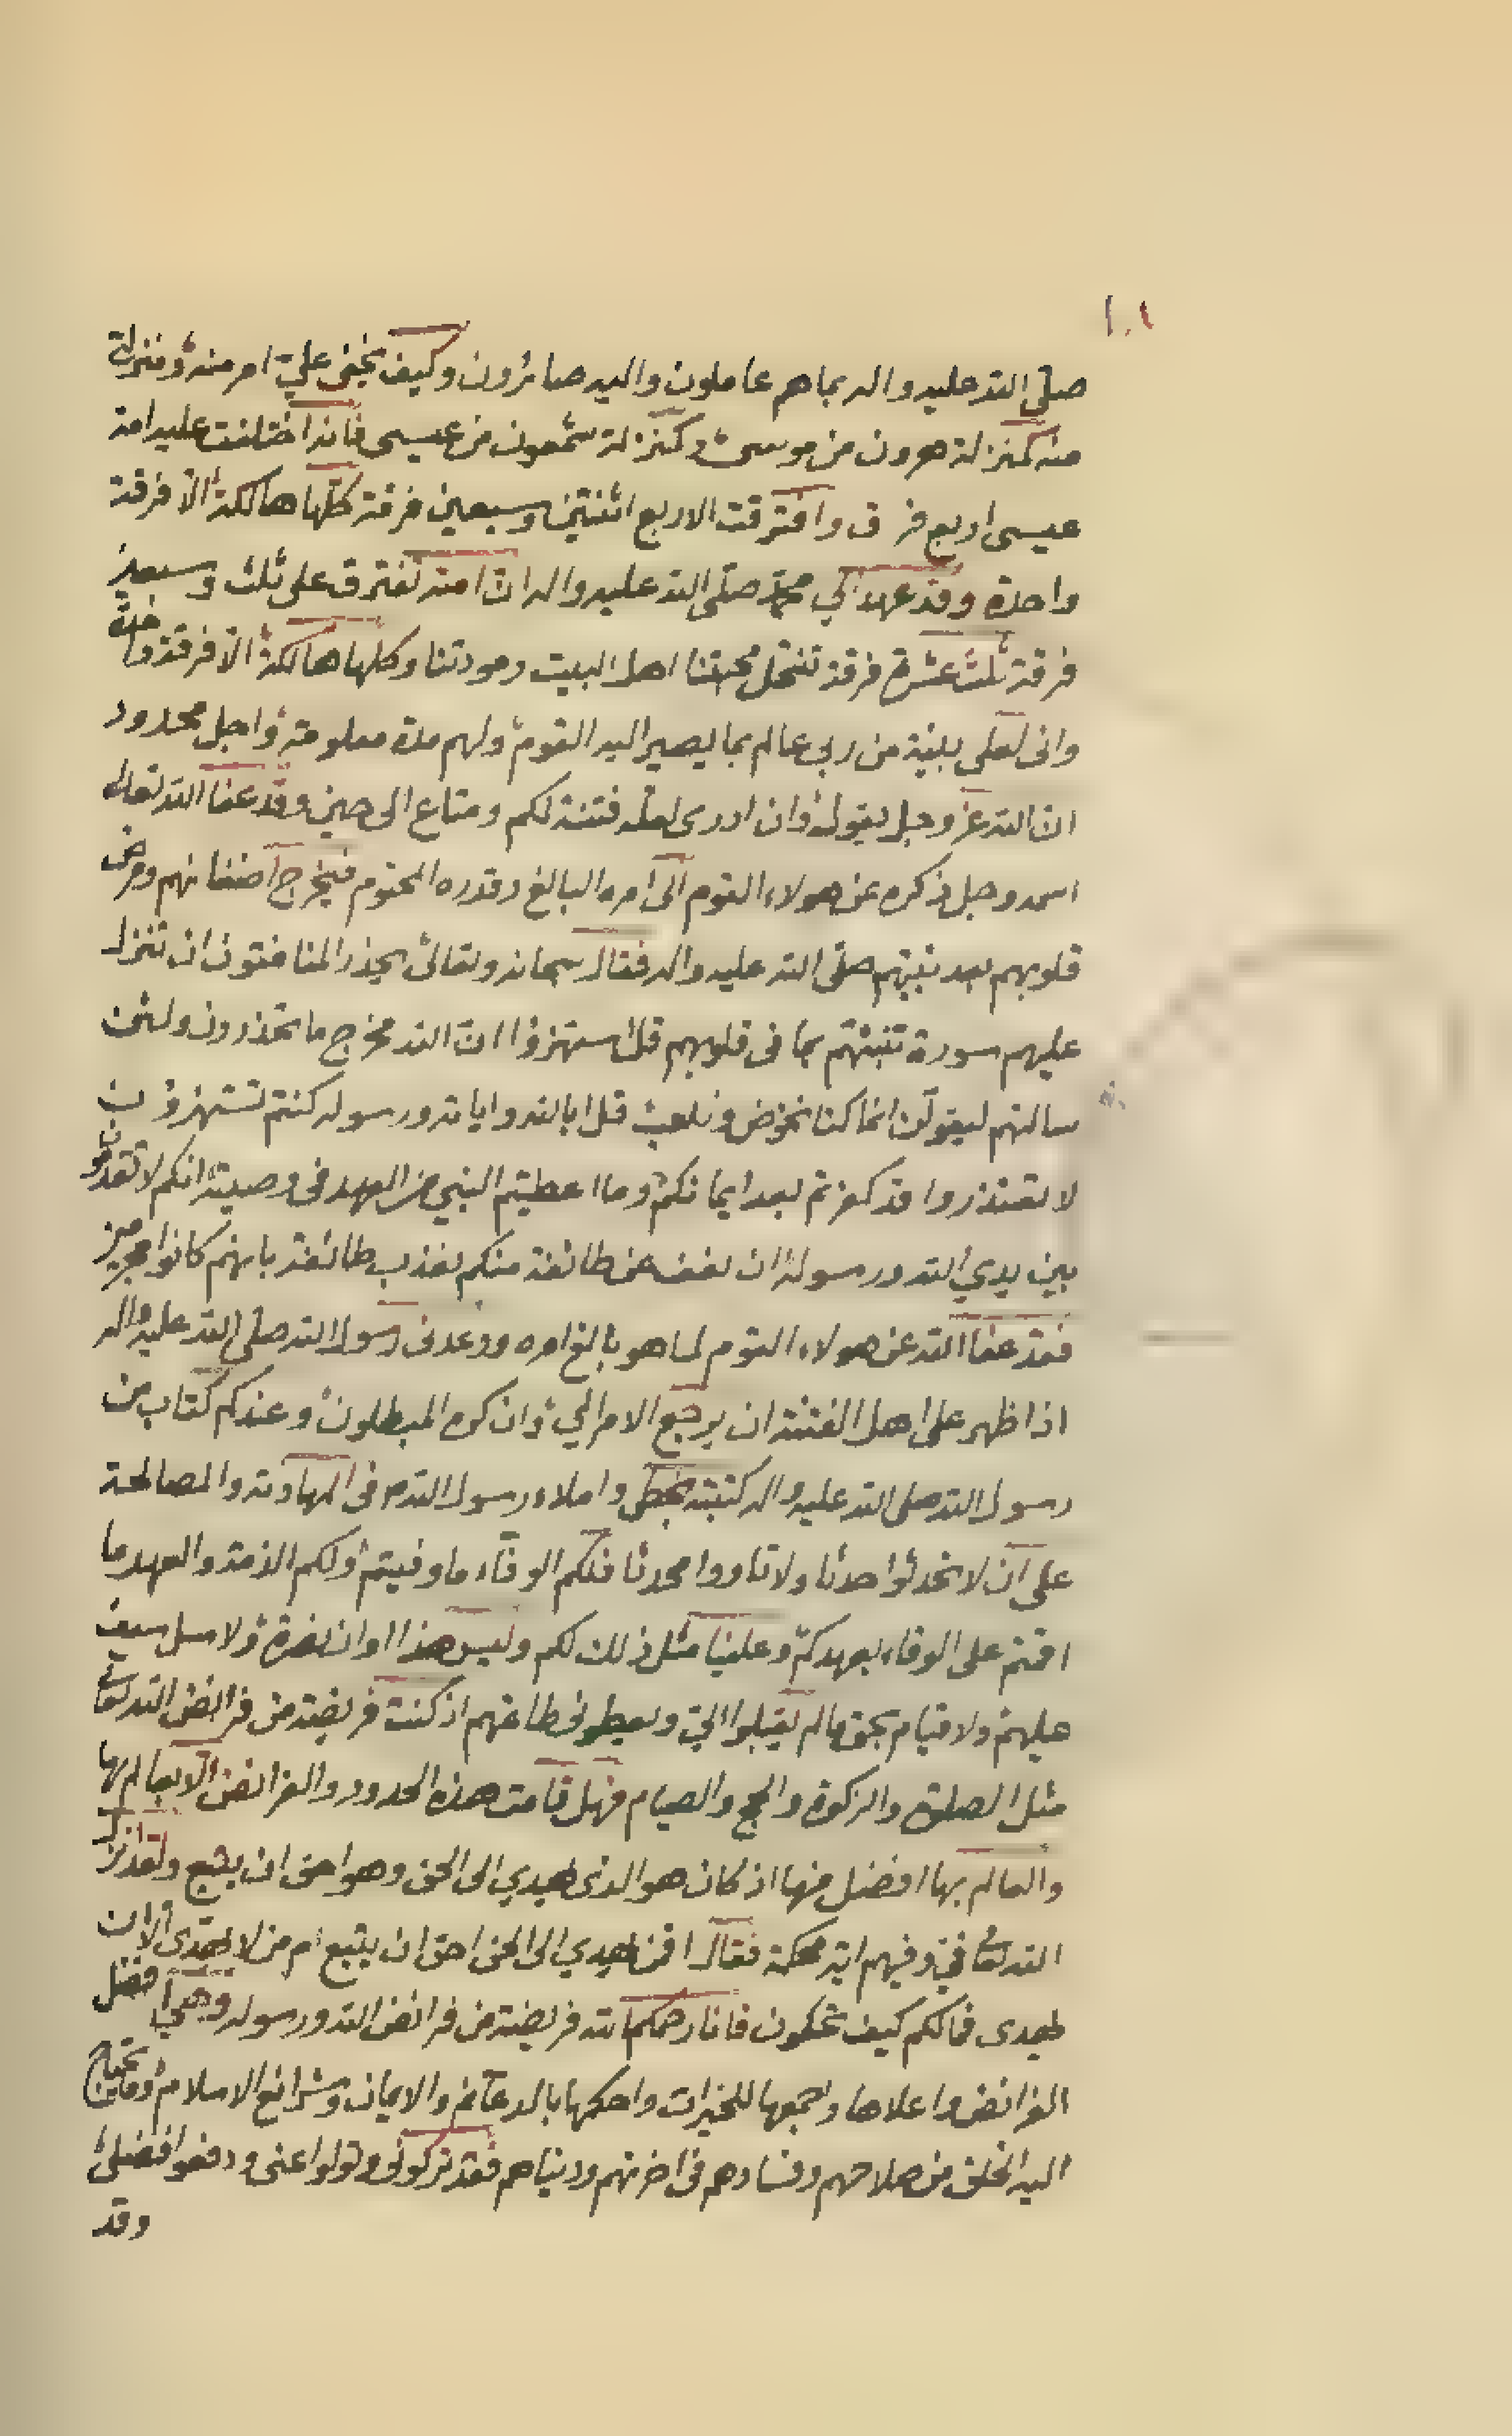 ١٠٤
صلى الله عليه واله بما هم عاملون واليه صائرون وكيف يخفى عليّ امر منه ومنزلة
منه كمنزلة هرون من موسى وكمنزلة شمعون من عيسى فانه اختلفت عليه امة
عيسى اربع فرق وافترقت الاربع اثنتين وسبعين فرقة كلها هالكة الا فرقة
واحدة وقد عهد الي محمد صلى الله عليه واله ان امته تفترق على ثلث وسبعين
فرقة ثلث عشرة فرقة تنتحل محبتنا اهل البيت ومودتنا وكلها هالكة الا فرقة واحدة
وانى لعلى بينة من ربي عالم بما يصير اليه القوم ولهم مدة معلومة واجل محدود
ان الله عز وجل يقول وان ادرى لعله فتنة لكم ومتاع الى حين وقد عفا الله تعالى
اسمه وجل ذكره عن هولاء القوم الى امره البالغ وقدره المحتوم فيخرج اضغانهم ومرض
قلوبهم بعد نبيهم صلى الله عليه واله فقال سبحانه وتعالى يحذر المنافقون ان تنزل
عليهم سورة تنبئهم بما فى قلوبهم قل استهزؤا ان الله مخرج ما تحذرون ولئن
سالتهم ليقولن انما كنا نخوض ونلعب قل ابالله واياته ورسوله كنتم تستهزؤن
لا تعتذروا قد كفرتم بعد ايمانكم وما اعطيتم النبي من العهد فى وصيته انكم لا تقدمون
بين يدي الله ورسوله ان نعف عن طائفة منكم نعذب طائفة بانهم كانوا مجرمين
فقد عفا الله عن هولاء القوم لما هو بالغ امره ووعدنى رسول الله صلى الله عليه واله
اذا ظهر على اهل الفتنة ان يرجع الامر الي وان كره المبطلون وعندكم كتاب من
رسول الله صلى الله عليه واله كتبته بخطي واملاء رسول الله ص فى المهادنة والمصالحة
على ان لا تحدثوا حدثا ولا تاووا محدثا فلكم الوفاء ما وفيتم ولكم الذمة والعهد ما
اقمتم على الوفاء بعهدكم وعلينا مثل ذلك لكم وليس هذا اوان نصرة ولا سل سيف
عليهم ولا قيام بحق مالم يقبلوا الي ويعطونى طاعتهم اذ كنت فريضة من فرائض الله تعالى
مثل الصلوة والزكوة والحج والصيام فهل قامت هذه الحدود والفرائض الا بعالم بها
والعالم بها افضل منها اذ كان هو الذى يهدي الى الحق وهو احق ان يتبع ولقد انزل
الله تعالى فيّ وفيهم اية محكمة فقال افمن يهدي الى الحق احق ان يتبع ام من لا يهدى الا ان
يهدى فمالكم كيف تحكمون فانا رحمكم الله فريضة من فرائض الله ورسوله وهي افضل
الفرائض واعلاها واجمعها للخيرات واحكمها بالدعائم والايمان وشرائع الاسلام وما يحتاج
اليه الخلق من صلاحهم وفسادهم فى اخرتهم ودنياهم فقد تركونى وتولوا عنى ودفعوا فضلى
وقد